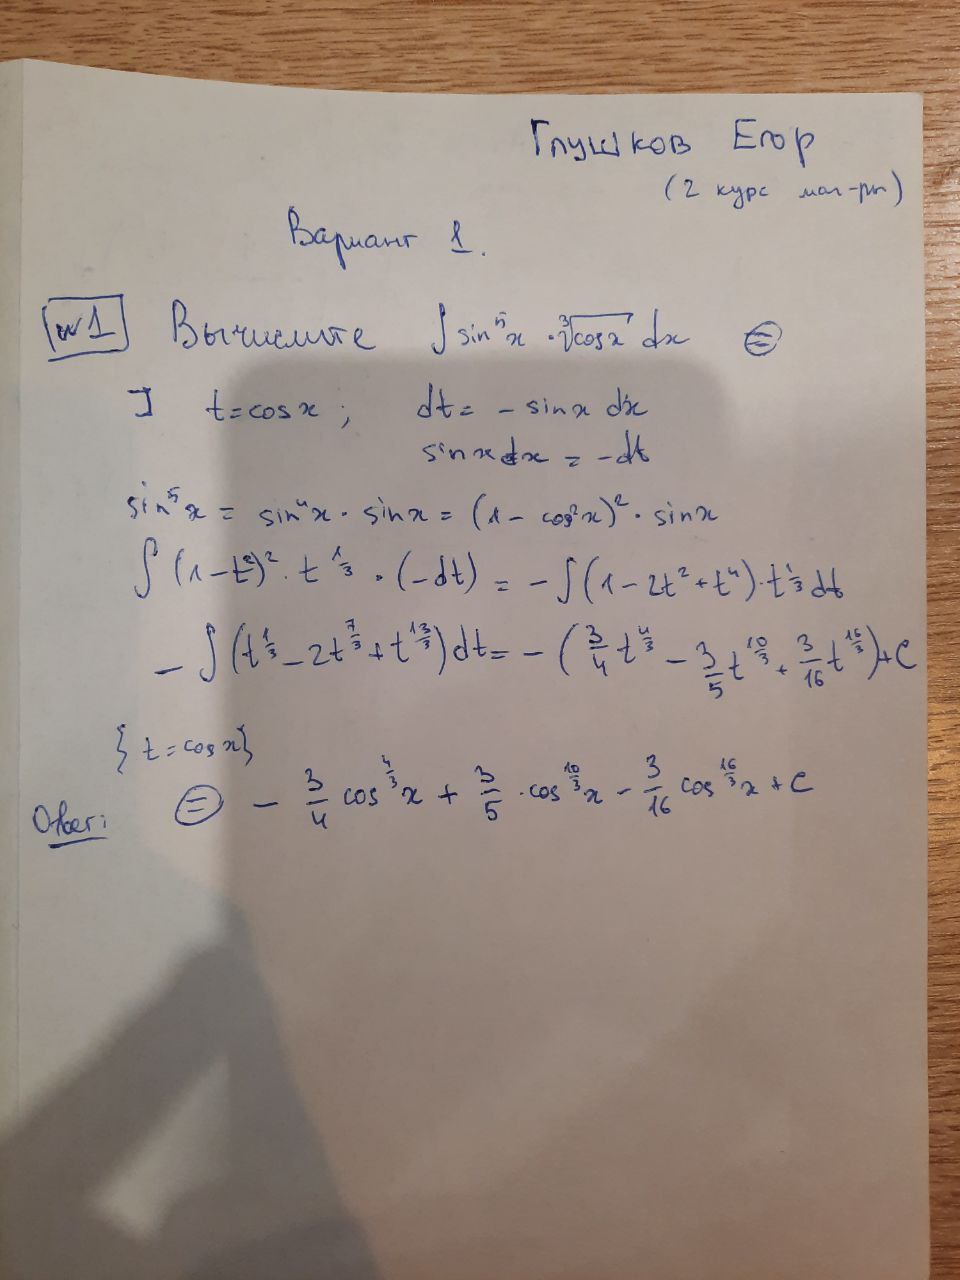 Глушков Егор
(2 курс маг-ры)
Вариант 1.
№1 Вычислите ∫ sin⁵x · ∛cosx dx ⊜
] t = cosx ; dt = - sinx dx
sinx dx = -dt
sin⁵x = sin⁴x · sinx = (1 - cos²x)² · sinx
∫ (1-t²)² · t^(1/3) · (-dt) = - ∫ (1 - 2t² + t⁴) · t^(1/3) dt
- ∫ (t^(1/3) - 2t^(7/3) + t^(13/3)) dt = - (3/4 t^(4/3) - 3/5 t^(10/3) + 3/16 t^(16/3)) + C
{ t = cosx }
Ответ: ⊜ - 3/4 cos^(4/3) x + 3/5 · cos^(10/3) x - 3/16 cos^(16/3) x + C